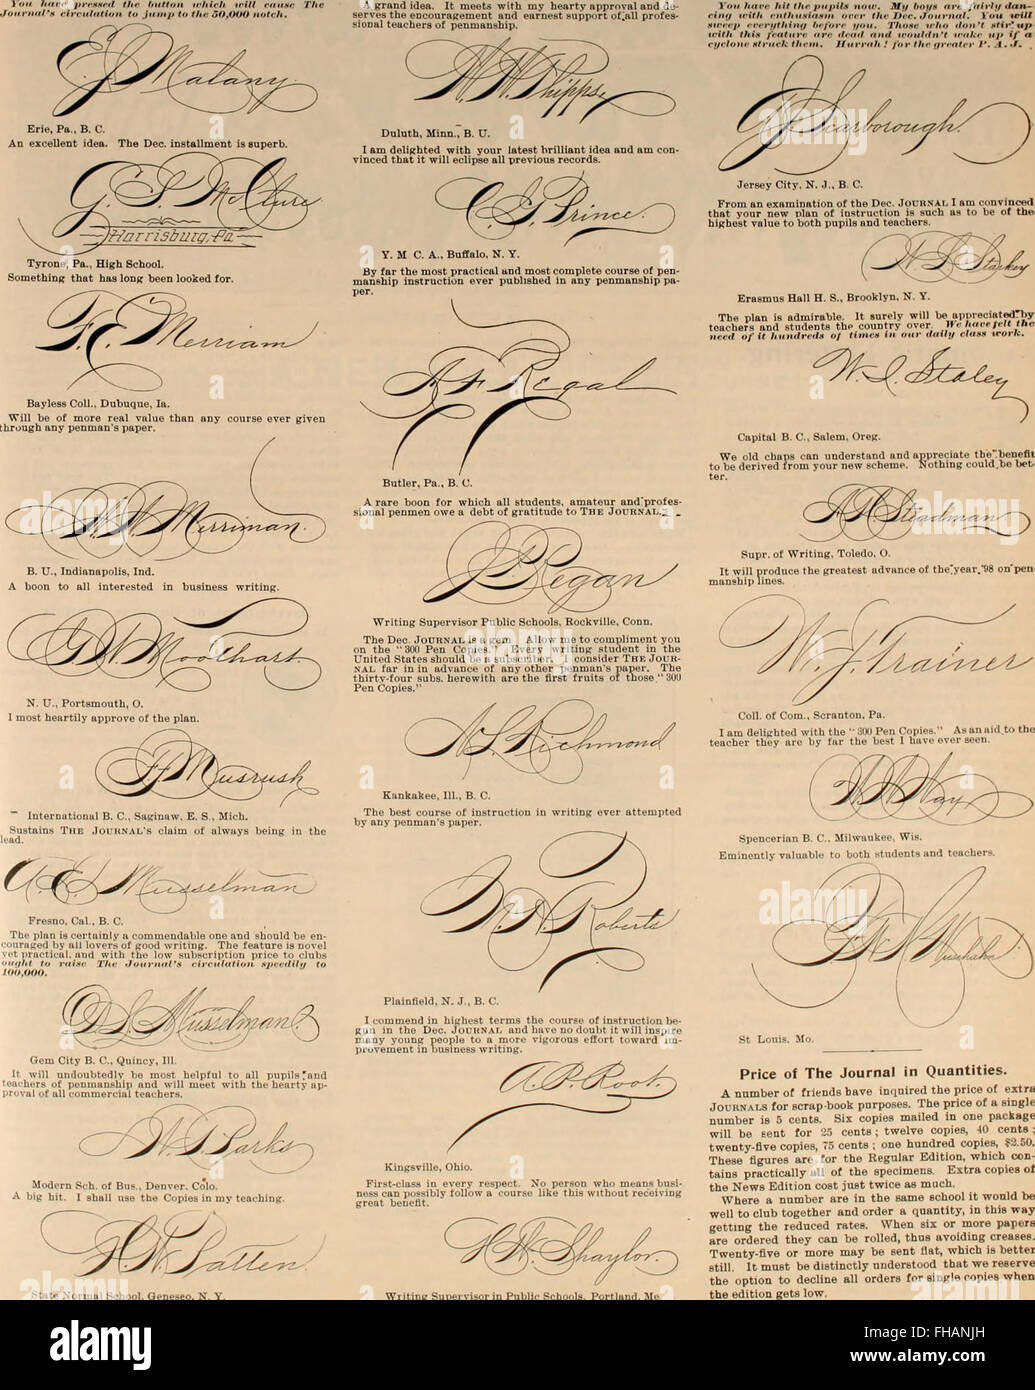 You have pressed the button which will cause The
Journal's circulation to jump to the 50,000 notch.
Malany
Erie, Pa., B. C.
An excellent idea. The Dec. installment is superb.
G. S. McClure
Harrisburg, Pa.
Tyrone, Pa., High School.
Something that has long been looked for.
F. E. Merriam
Bayless Coll., Dubuque, Ia.
Will be of more real value than any course ever given
through any penman's paper.
Merriman.
B. U., Indianapolis, Ind.
A boon to all interested in business writing.
G. W. Moothart.
N. U., Portsmouth, O.
I most heartily approve of the plan.
Musrush
International B. C., Saginaw, E. S., Mich.
Sustains THE JOURNAL'S claim of always being in the
lead.
Musselman
Fresno, Cal., B. C.
The plan is certainly a commendable one and should be en-
couraged by all lovers of good writing. The feature is novel
yet practical, and with the low subscription price to clubs
ought to raise The Journal's circulation speedily to
100,000.
D. L. Musselman.
Gem City B. C., Quincy, Ill.
It will undoubtedly be most helpful to all pupils and
teachers of penmanship and will meet with the hearty ap-
proval of all commercial teachers.
Parks
Modern Sch. of Bus., Denver, Colo.
A big hit. I shall use the Copies in my teaching.
Patten.
State Normal School, Geneseo, N. Y.
A grand idea. It meets with my hearty approval and de-
serves the encouragement and earnest support of all profes-
sional teachers of penmanship.
Phipps.
Duluth, Minn., B. U.
I am delighted with your latest brilliant idea and am con-
vinced that it will eclipse all previous records.
C. E. Prince.
Y. M C. A., Buffalo, N. Y.
By far the most practical and most complete course of pen-
manship instruction ever published in any penmanship pa-
per.
A F Regal
Butler, Pa., B. C.
A rare boon for which all students, amateur and profes-
sional penmen owe a debt of gratitude to THE JOURNAL.
Regan
Writing Supervisor Public Schools, Rockville, Conn.
The Dec. JOURNAL is a gem. Allow me to compliment you
on the "300 Pen Copies." Every writing student in the
United States should be a subscriber. I consider THE JOUR-
NAL far in in advance of any other penman's paper. The
thirty-four subs. herewith are the first fruits of those "300
Pen Copies."
Richmond
Kankakee, Ill., B. C.
The best course of instruction in writing ever attempted
by any penman's paper.
Roberts
Plainfield, N. J., B. C.
I commend in highest terms the course of instruction be-
gun in the Dec. JOURNAL and have no doubt it will inspire
many young people to a more vigorous effort toward im-
provement in business writing.
A. P. Root.
Kingsville, Ohio.
First-class in every respect. No person who means busi-
ness can possibly follow a course like this without receiving
great benefit.
Shaylor.
Writing Supervisor in Public Schools, Portland, Me.
You have hit the pupils now. My boys are fairly dan-
cing with enthusiasm over the Dec. Journal. You will
sweep everything before you. Those who don't stir up
with this feature are dead and wouldn't wake up if a
cyclone struck them. Hurrah! for the greater P. A. J.
Scarborough.
Jersey City, N. J., B. C.
From an examination of the Dec. JOURNAL I am convinced
that your new plan of instruction is such as to be of the
highest value to both pupils and teachers.
Starkey
Erasmus Hall H. S., Brooklyn, N. Y.
The plan is admirable. It surely will be appreciated by
teachers and students the country over. We have felt the
need of it hundreds of times in our daily class work.
W. I. Staley
Capital B. C., Salem, Oreg.
We old chaps can understand and appreciate the benefit
to be derived from your new scheme. Nothing could be bet-
ter.
Steadman
Supr. of Writing, Toledo, O.
It will produce the greatest advance of the year '98 on pen-
manship lines.
W. J. Trainer
Coll. of Com., Scranton, Pa.
I am delighted with the "300 Pen Copies." As an aid to the
teacher they are by far the best I have ever seen.
Way
Spencerian B. C., Milwaukee, Wis.
Eminently valuable to both students and teachers.
St Louis, Mo.
Price of The Journal in Quantities.
A number of friends have inquired the price of extra
JOURNALS for scrap-book purposes. The price of a single
number is 5 cents. Six copies mailed in one package
will be sent for 25 cents; twelve copies, 40 cents;
twenty-five copies, 75 cents; one hundred copies, $2.50.
These figures are for the Regular Edition, which con-
tains practically all of the specimens. Extra copies of
the News Edition cost just twice as much.
Where a number are in the same school it would be
well to club together and order a quantity, in this way
getting the reduced rates. When six or more papers
are ordered they can be rolled, thus avoiding creases.
Twenty-five or more may be sent flat, which is better
still. It must be distinctly understood that we reserve
the option to decline all orders for single copies when
the edition gets low.
alamy
alamy stock photo
FHANJH
www.alamy.com